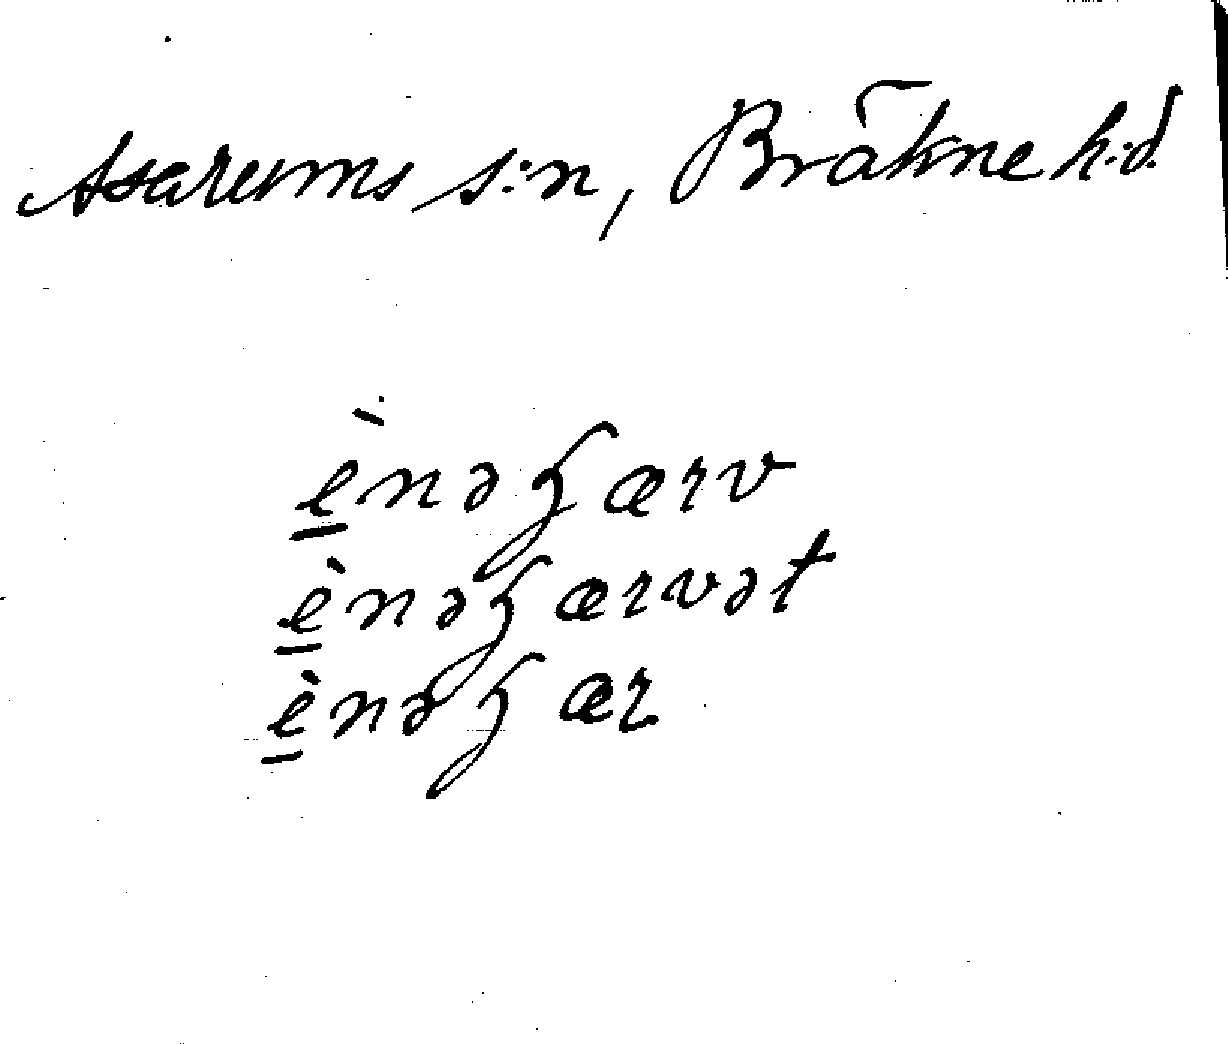 Asarums s:n, Bräkne h:d.
è̱nəɧærv
è̱nəɧærvət
è̱nəɧær